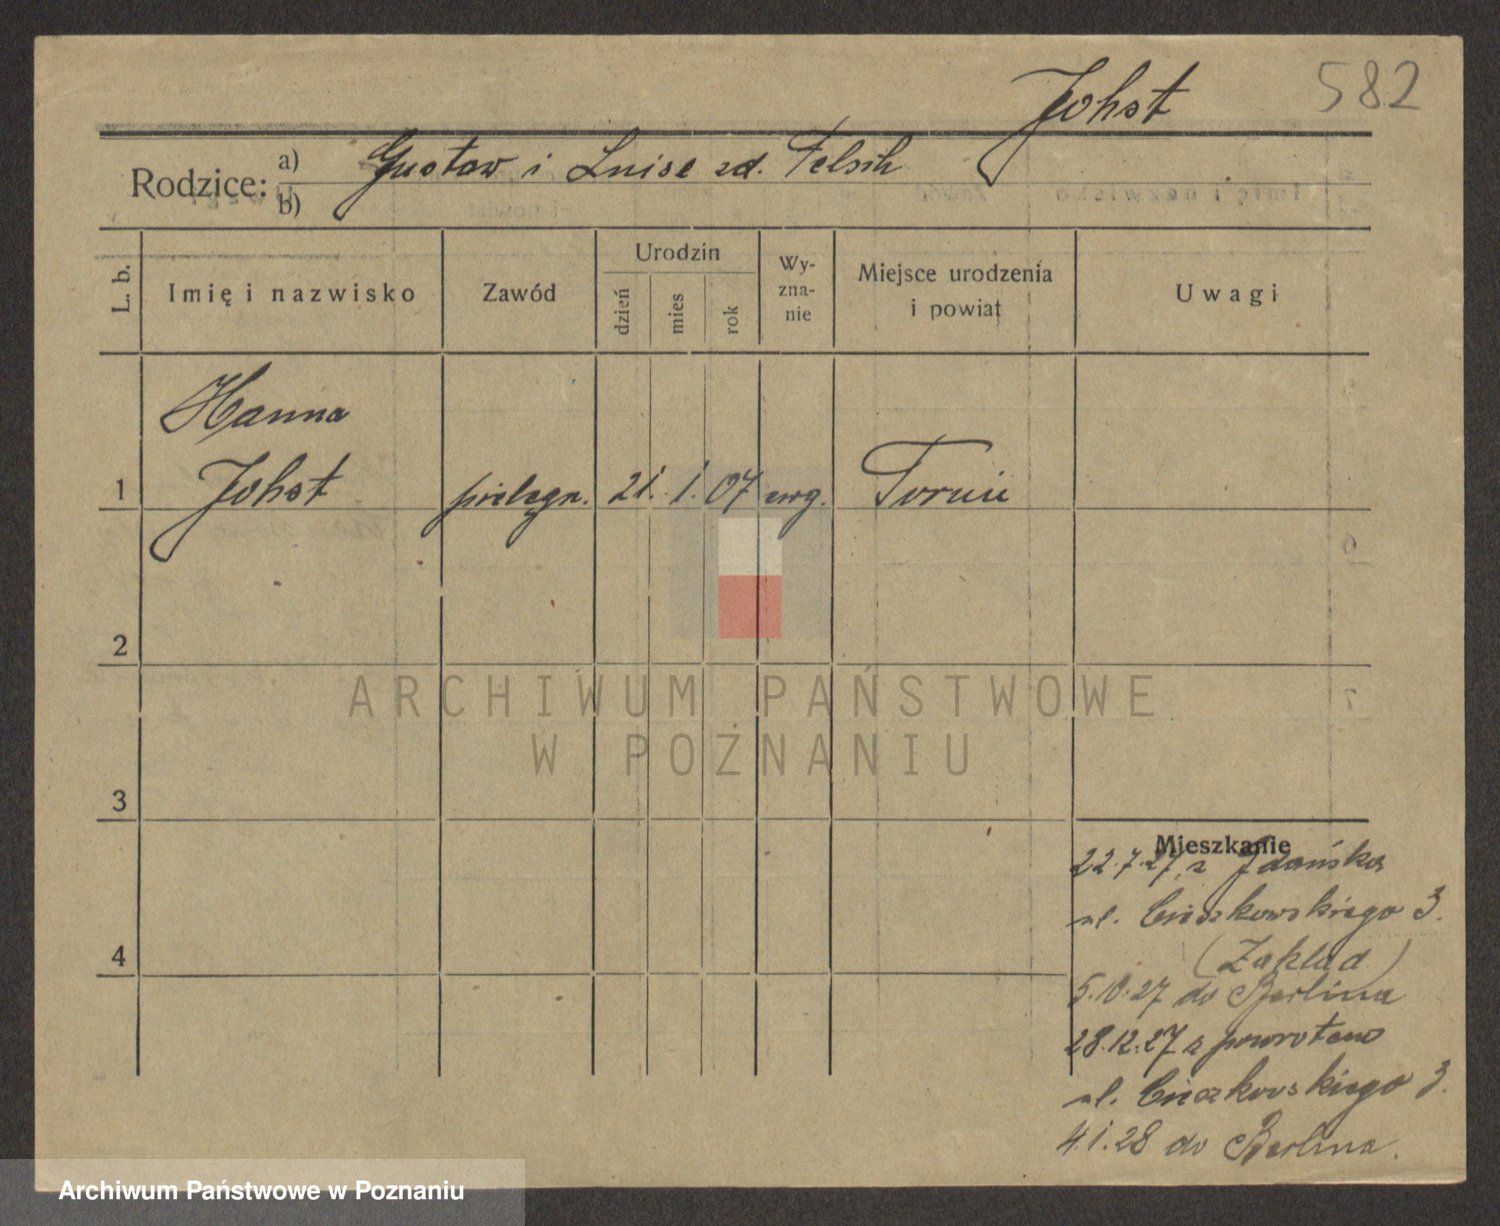 582
Johst
Rodzice: a) Gustaw i Luise zd. Felsch
b)
L. b. Imię i nazwisko Zawód Urodzin dzień mies rok Wy-zna-nie Miejsce urodzenia i powiat Uwagi
Hanna
1 Johst pielęgn. 21. 1. 07 ewg. Toruń
2
3
4
Mieszkanie
22.7.27 z Gdańska
ul. Cieszkowskiego 3.
(Zakład)
5.10.27 do Berlina
28.12.27 z powrotem
ul. Cieszkowskiego 3.
4.1.28 do Berlina.
ARCHIWUM PAŃSTWOWE
W POZNANIU
Archiwum Państwowe w Poznaniu